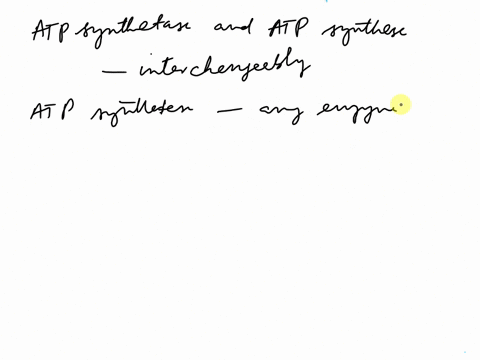 ATP synthetase and ATP synthese
— interchengeebly
ATP synthetase — any enzyme